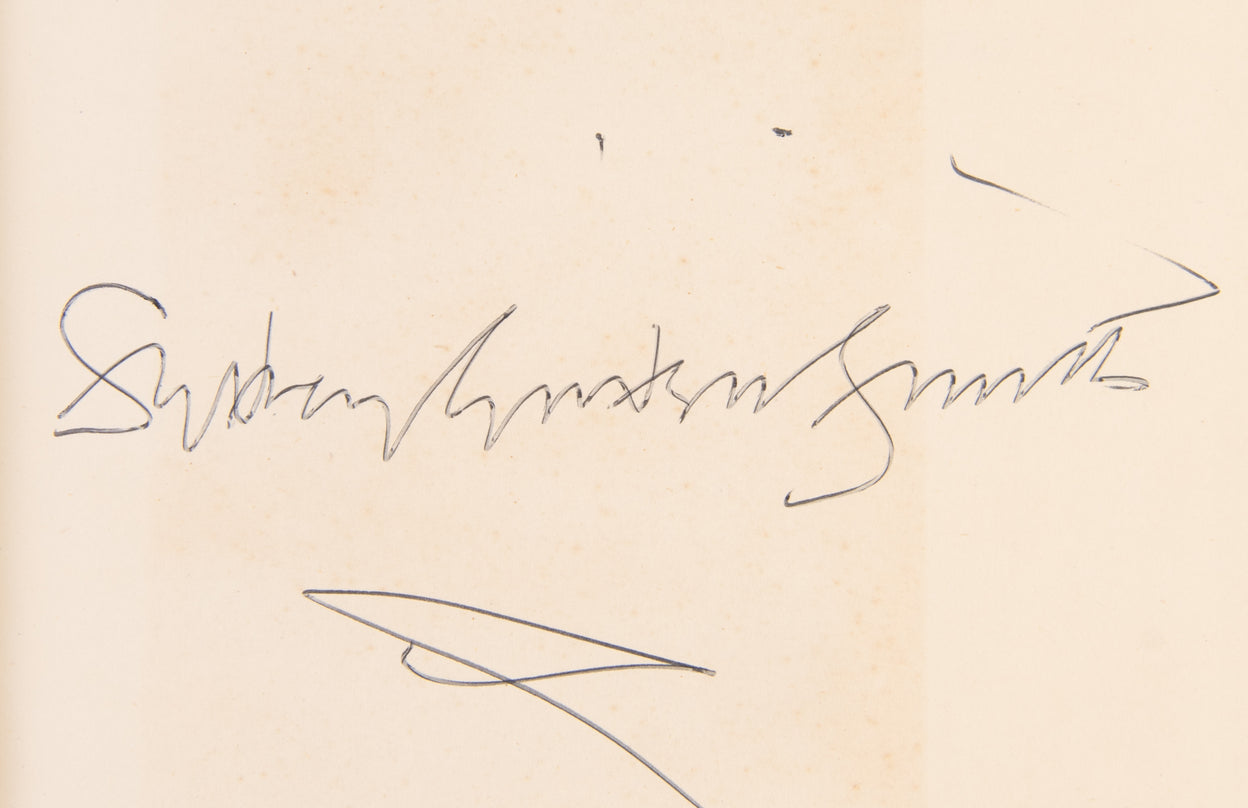 Sydney Goodsir Smith